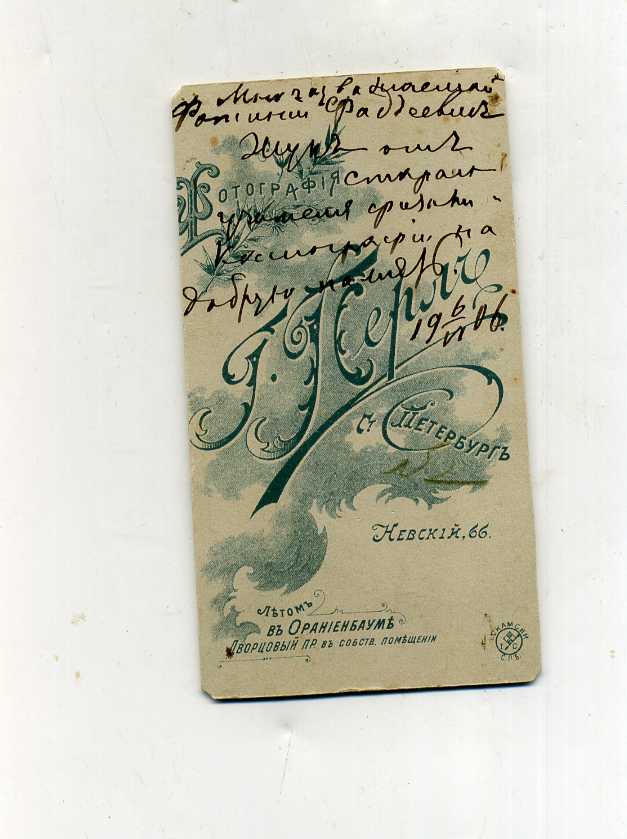 Многоуважаемой
Фотинии Фаддеевне
Жукъ отъ
стараго
учителя физики и
космографіи, на
добрую память.
19 6/VI 06.
Фотографія
Г. Перлъ
Ст Петербургъ
Невскій, 66.
Лѣтомъ
въ Ораніенбаумѣ
Дворцовый пр. въ собств. помѣщеніи
С.П.Б.